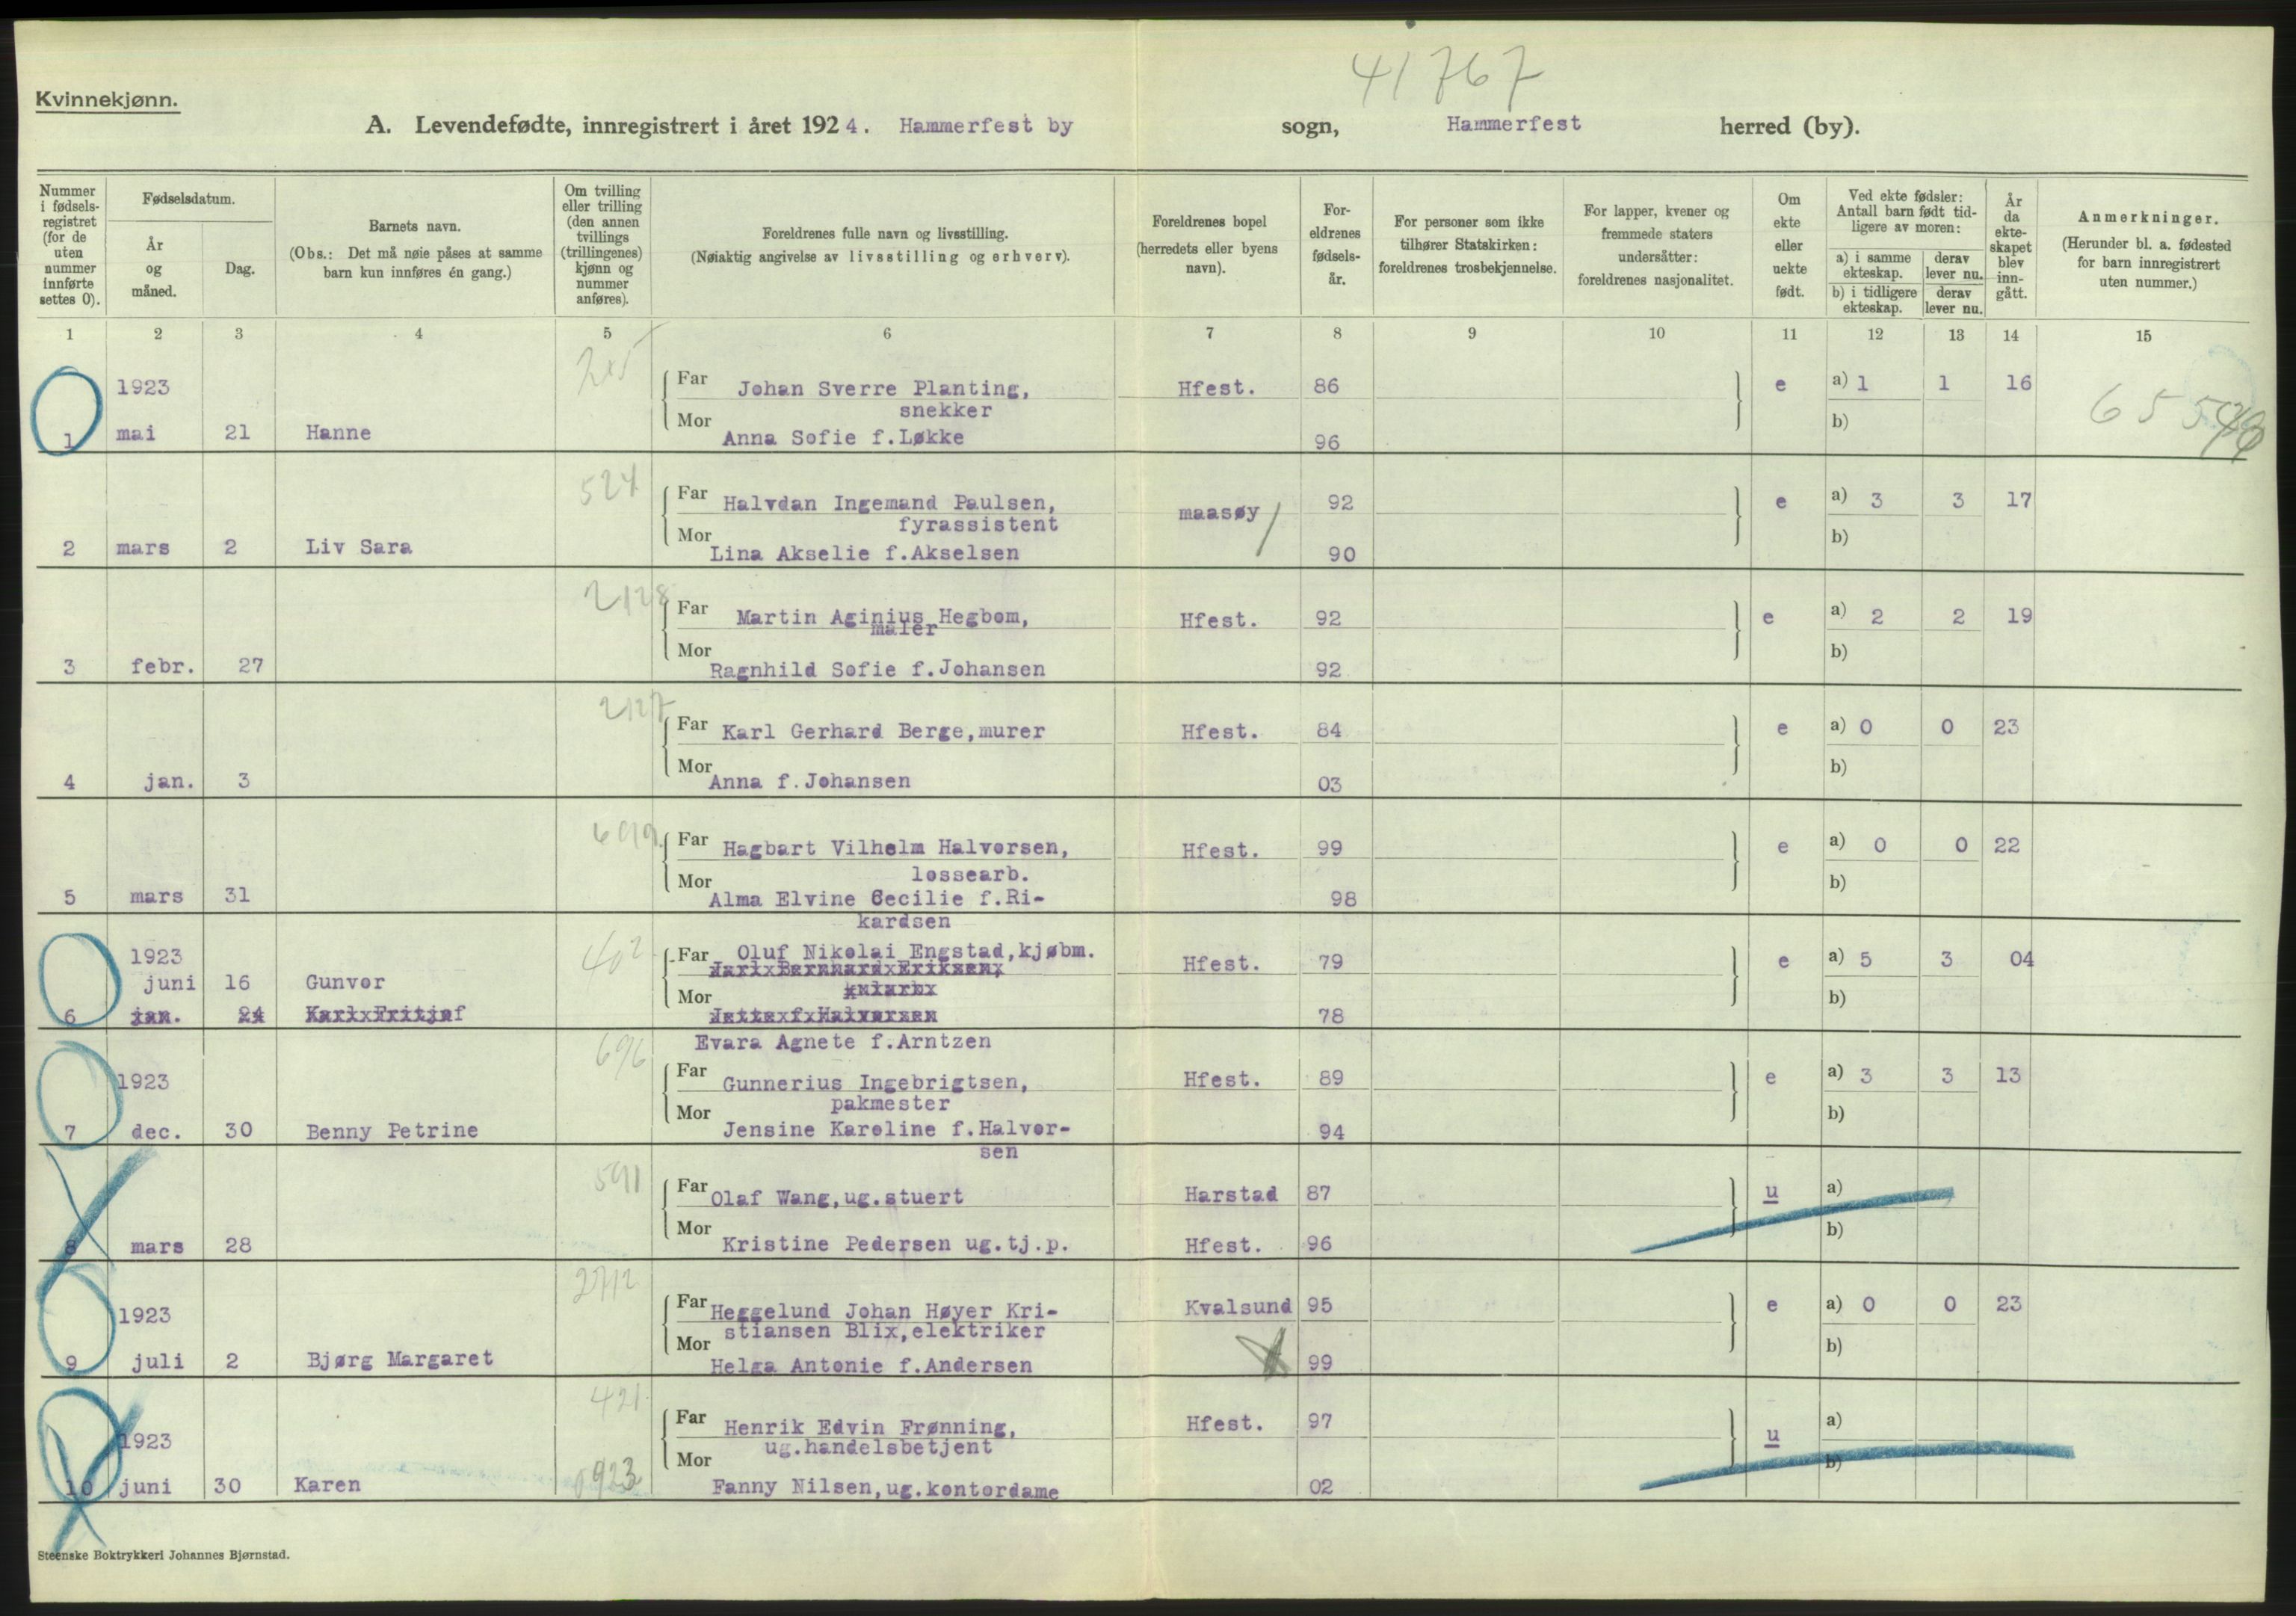 41767
Kvinnekjønn.
A. Levendefødte, innregistrert i året 1924. Hammerfest by sogn, Hammerfest herred (by).
Nummer i fødsels-registret (for de uten nummer innførte settes 0).
Fødselsdatum.
År og måned.
Dag.
Barnets navn.
(Obs.: Det må nøie påses at samme barn kun innføres én gang.)
Om tvilling eller trilling (den annen tvillings (trillingenes) kjønn og nummer anføres).
Foreldrenes fulle navn og livsstilling.
(Nøiaktig angivelse av livsstilling og erhverv).
Foreldrenes bopel (herredets eller byens navn).
For-eldrenes fødsels-år.
For personer som ikke tilhører Statskirken: foreldrenes trosbekjennelse.
For lapper, kvener og fremmede staters undersåtter: foreldrenes nasjonalitet.
Om ekte eller uekte født.
Ved ekte fødsler: Antall barn født tid-ligere av moren:
a) i samme ekteskap. derav lever nu.
b) i tidligere ekteskap. derav lever nu.
År da ekte-skapet blev inn-gått.
Anmerkninger.
(Herunder bl. a. fødested for barn innregistrert uten nummer.)
1 2 3 4 5 6 7 8 9 10 11 12 13 14 15
1923 Far Johan Sverre Planting, Hfest. 86 e a) 1 1 16
snekker
1 mai 21 Hanne Mor Anna Sofie f.Løkke 96 b)
524
Far Halvdan Ingemand Paulsen, maasøy 92 e a) 3 3 17
fyrassistent
2 mars 2 Liv Sara Mor Lina Akselie f.Akselsen 90 b)
2128
Far Martin Aginius Hegbom, Hfest. 92 e a) 2 2 19
maler
3 febr. 27 Mor Ragnhild Sofie f.Johansen 92 b)
2127
Far Karl Gerhard Berge,murer Hfest. 84 e a) 0 0 23
4 jan. 3 Mor Anna f.Johansen 03 b)
Far Hagbart Vilhelm Halvorsen, Hfest. 99 e a) 0 0 22
lossearb.
5 mars 31 Mor Alma Elvine Cecilie f.Ri- 98 b)
kardsen
402
1923 Far Oluf Nikolai Engstad,kjøbm. Hfest. 79 e a) 5 3 04
juni 16 Gunvor Mor b)
6 jan. 24 78
Evara Agnete f.Arntzen
696
1923 Far Gunnerius Ingebrigtsen, Hfest. 89 e a) 3 3 13
pakmester
7 dec. 30 Benny Petrine Mor Jensine Karoline f.Halvor- 94 b)
sen
591
Far Olaf Wang,ug.stuert Harstad 87 u a)
8 mars 28 Mor Kristine Pedersen ug.tj.p. Hfest. 96 b)
2712
1923 Far Heggelund Johan Høyer Kri- Kvalsund 95 e a) 0 0 23
stiansen Blix,elektriker
9 juli 2 Bjørg Margaret Mor Helga Antonie f.Andersen 99 b)
421
1923 Far Henrik Edvin Frønning, Hfest. 97 u a)
ug.handelsbetjent
10 juni 30 Karen Mor Fanny Nilsen,ug.kontordame 02 b)
Steenske Boktrykkeri Johannes Bjørnstad.